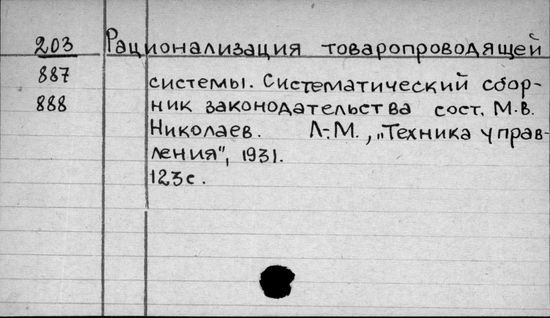 203 Рационализация товаропроводящей
887 системы. Систематический сбор-
888 ник законодательства сост. М.В.
Николаев. Л.-М., „Техника управ-
ления", 1931.
123с.